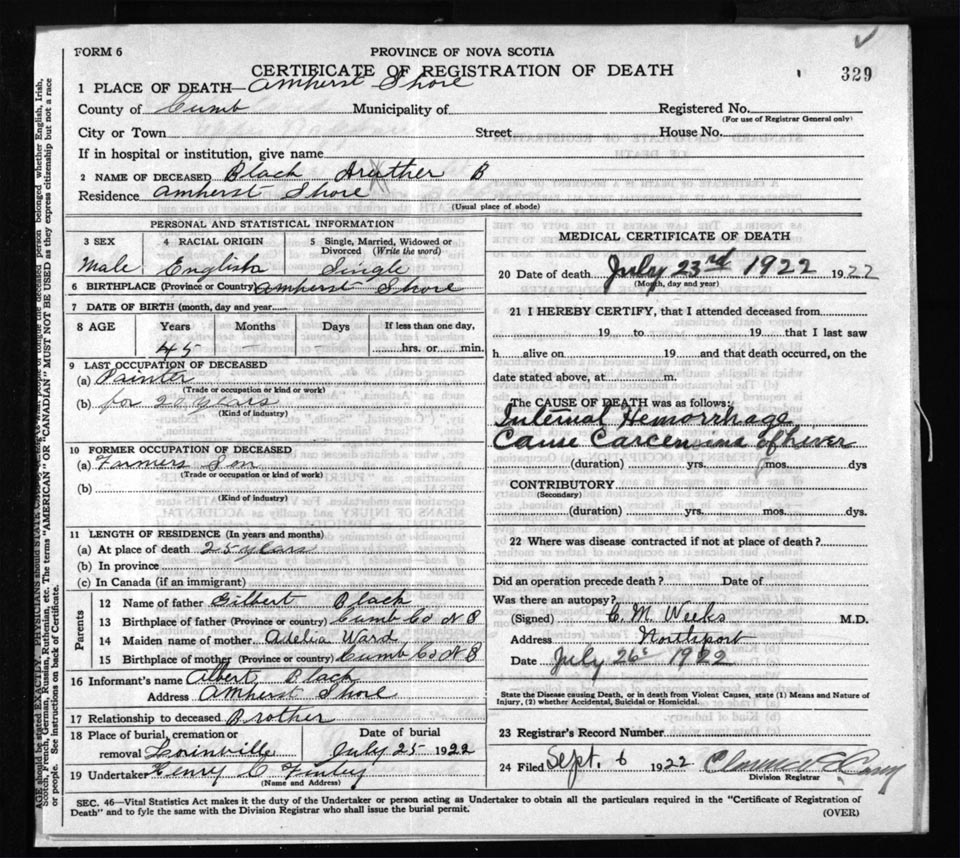 FORM 6
PROVINCE OF NOVA SCOTIA
CERTIFICATE OF REGISTRATION OF DEATH
329
1 PLACE OF DEATH—Amherst Shore
County of Cumb Municipality of Registered No.
(For use of Registrar General only)
City or Town Street House No.
If in hospital or institution, give name
2 NAME OF DECEASED Black B
Residence Amherst Shore
(Usual place of abode)
PERSONAL AND STATISTICAL INFORMATION
3 SEX 4 RACIAL ORIGIN 5 Single, Married, Widowed or Divorced (Write the word)
Male English Single
6 BIRTHPLACE (Province or Country) Amherst Shore
7 DATE OF BIRTH (month, day and year)
8 AGE Years Months Days If less than one day,
45 hrs. or min.
9 LAST OCCUPATION OF DECEASED
(a) Painter
(Trade or occupation or kind or work)
(b) for 20 years
(Kind of industry)
10 FORMER OCCUPATION OF DECEASED
(a) Farmers Son
(Trade or occupation or kind of work)
(b)
(Kind of industry)
11 LENGTH OF RESIDENCE (In years and months)
(a) At place of death 25 years
(b) In province
(c) In Canada (if an immigrant)
Parents
12 Name of father Gilbert Black
13 Birthplace of father (Province or country) Cumb Co N S
14 Maiden name of mother Adelia Ward
15 Birthplace of mother (Province or country) Cumb Co N S
16 Informant's name Albert Black
Address Amherst Shore
17 Relationship to deceased Brother
18 Place of burial, cremation or removal Lorinville
Date of burial July 25 1922
19 Undertaker Henry C Finley
(Name and Address)
MEDICAL CERTIFICATE OF DEATH
20 Date of death July 23rd 1922 1922
(Month, day and year)
21 I HEREBY CERTIFY, that I attended deceased from
19 to 19 that I last saw
h alive on 19 and that death occurred, on the
date stated above, at m.
The CAUSE OF DEATH was as follows:
Internal Hemorrhage
Cause Carcenoma of Liver
(duration) yrs. mos. dys
CONTRIBUTORY
(Secondary)
(duration) yrs. mos. dys.
22 Where was disease contracted if not at place of death?
Did an operation precede death? Date of
Was there an autopsy?
(Signed) C. M. Weeks M.D.
Address Northport
Date July 26 1922
State the Disease causing Death, or in death from Violent Causes, state (1) Means and Nature of
Injury, (2) whether Accidental, Suicidal or Homicidal.
23 Registrar's Record Number
24 Filed Sept. 6 1922
Division Registrar
SEC. 46—Vital Statistics Act makes it the duty of the Undertaker or person acting as Undertaker to obtain all the particulars required in the "Certificate of Registration of
Death" and to fyle the same with the Division Registrar who shall issue the burial permit.
(OVER)